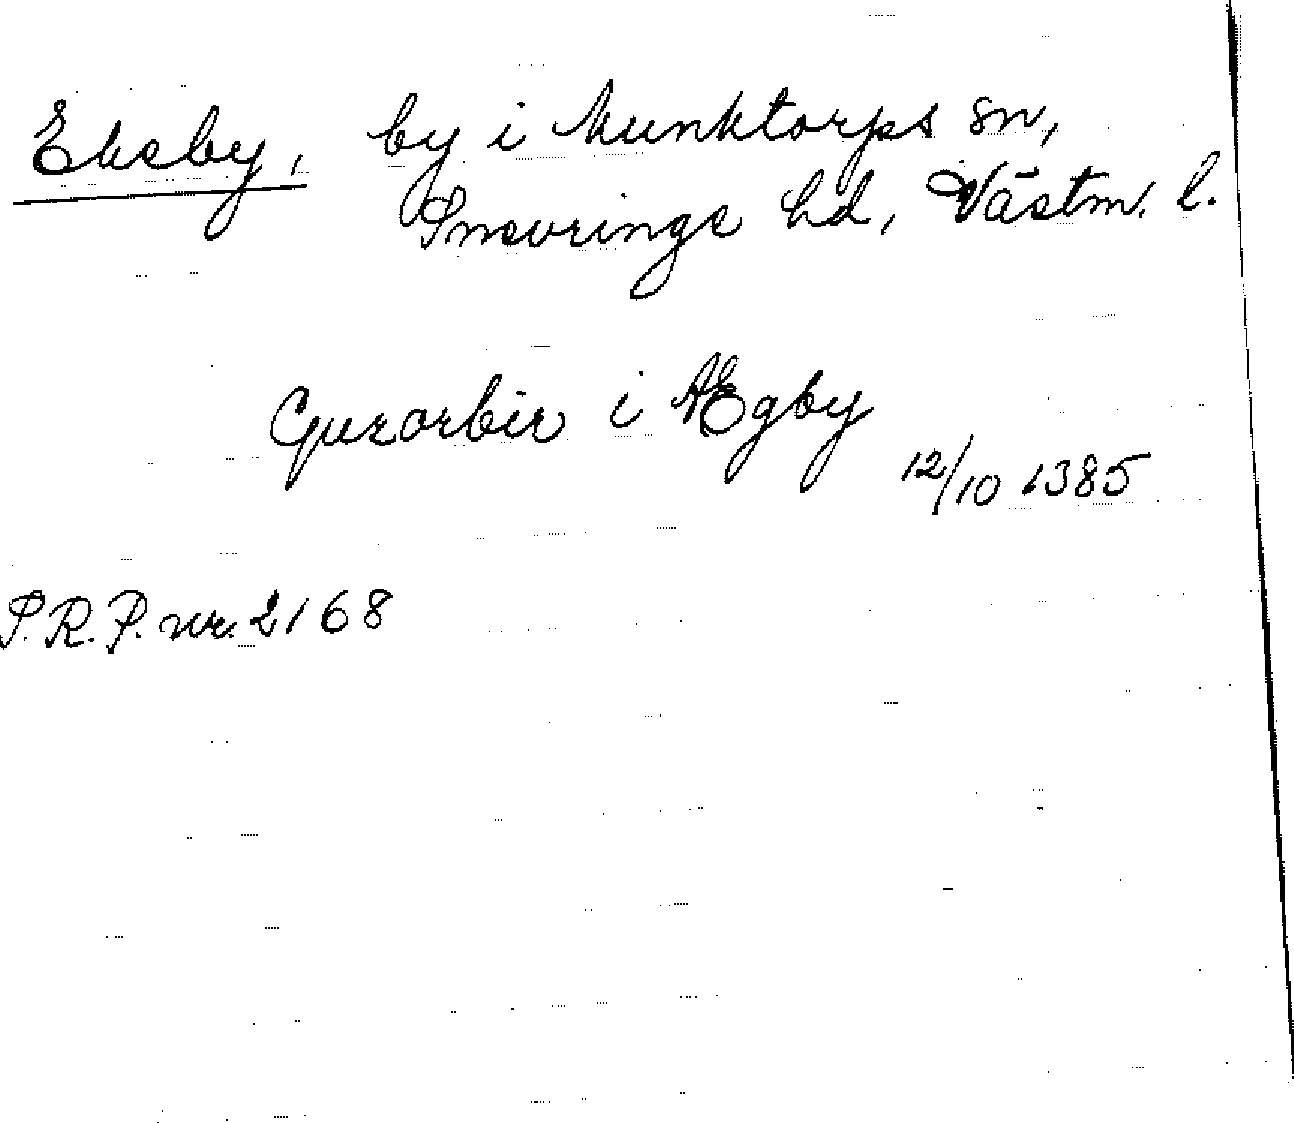 Eksby, by i Munktorps sn,
Snevringe hd, Västm. l.
Gurorbir i Ægby
12/10 1385
S.R.P. nr. 2168